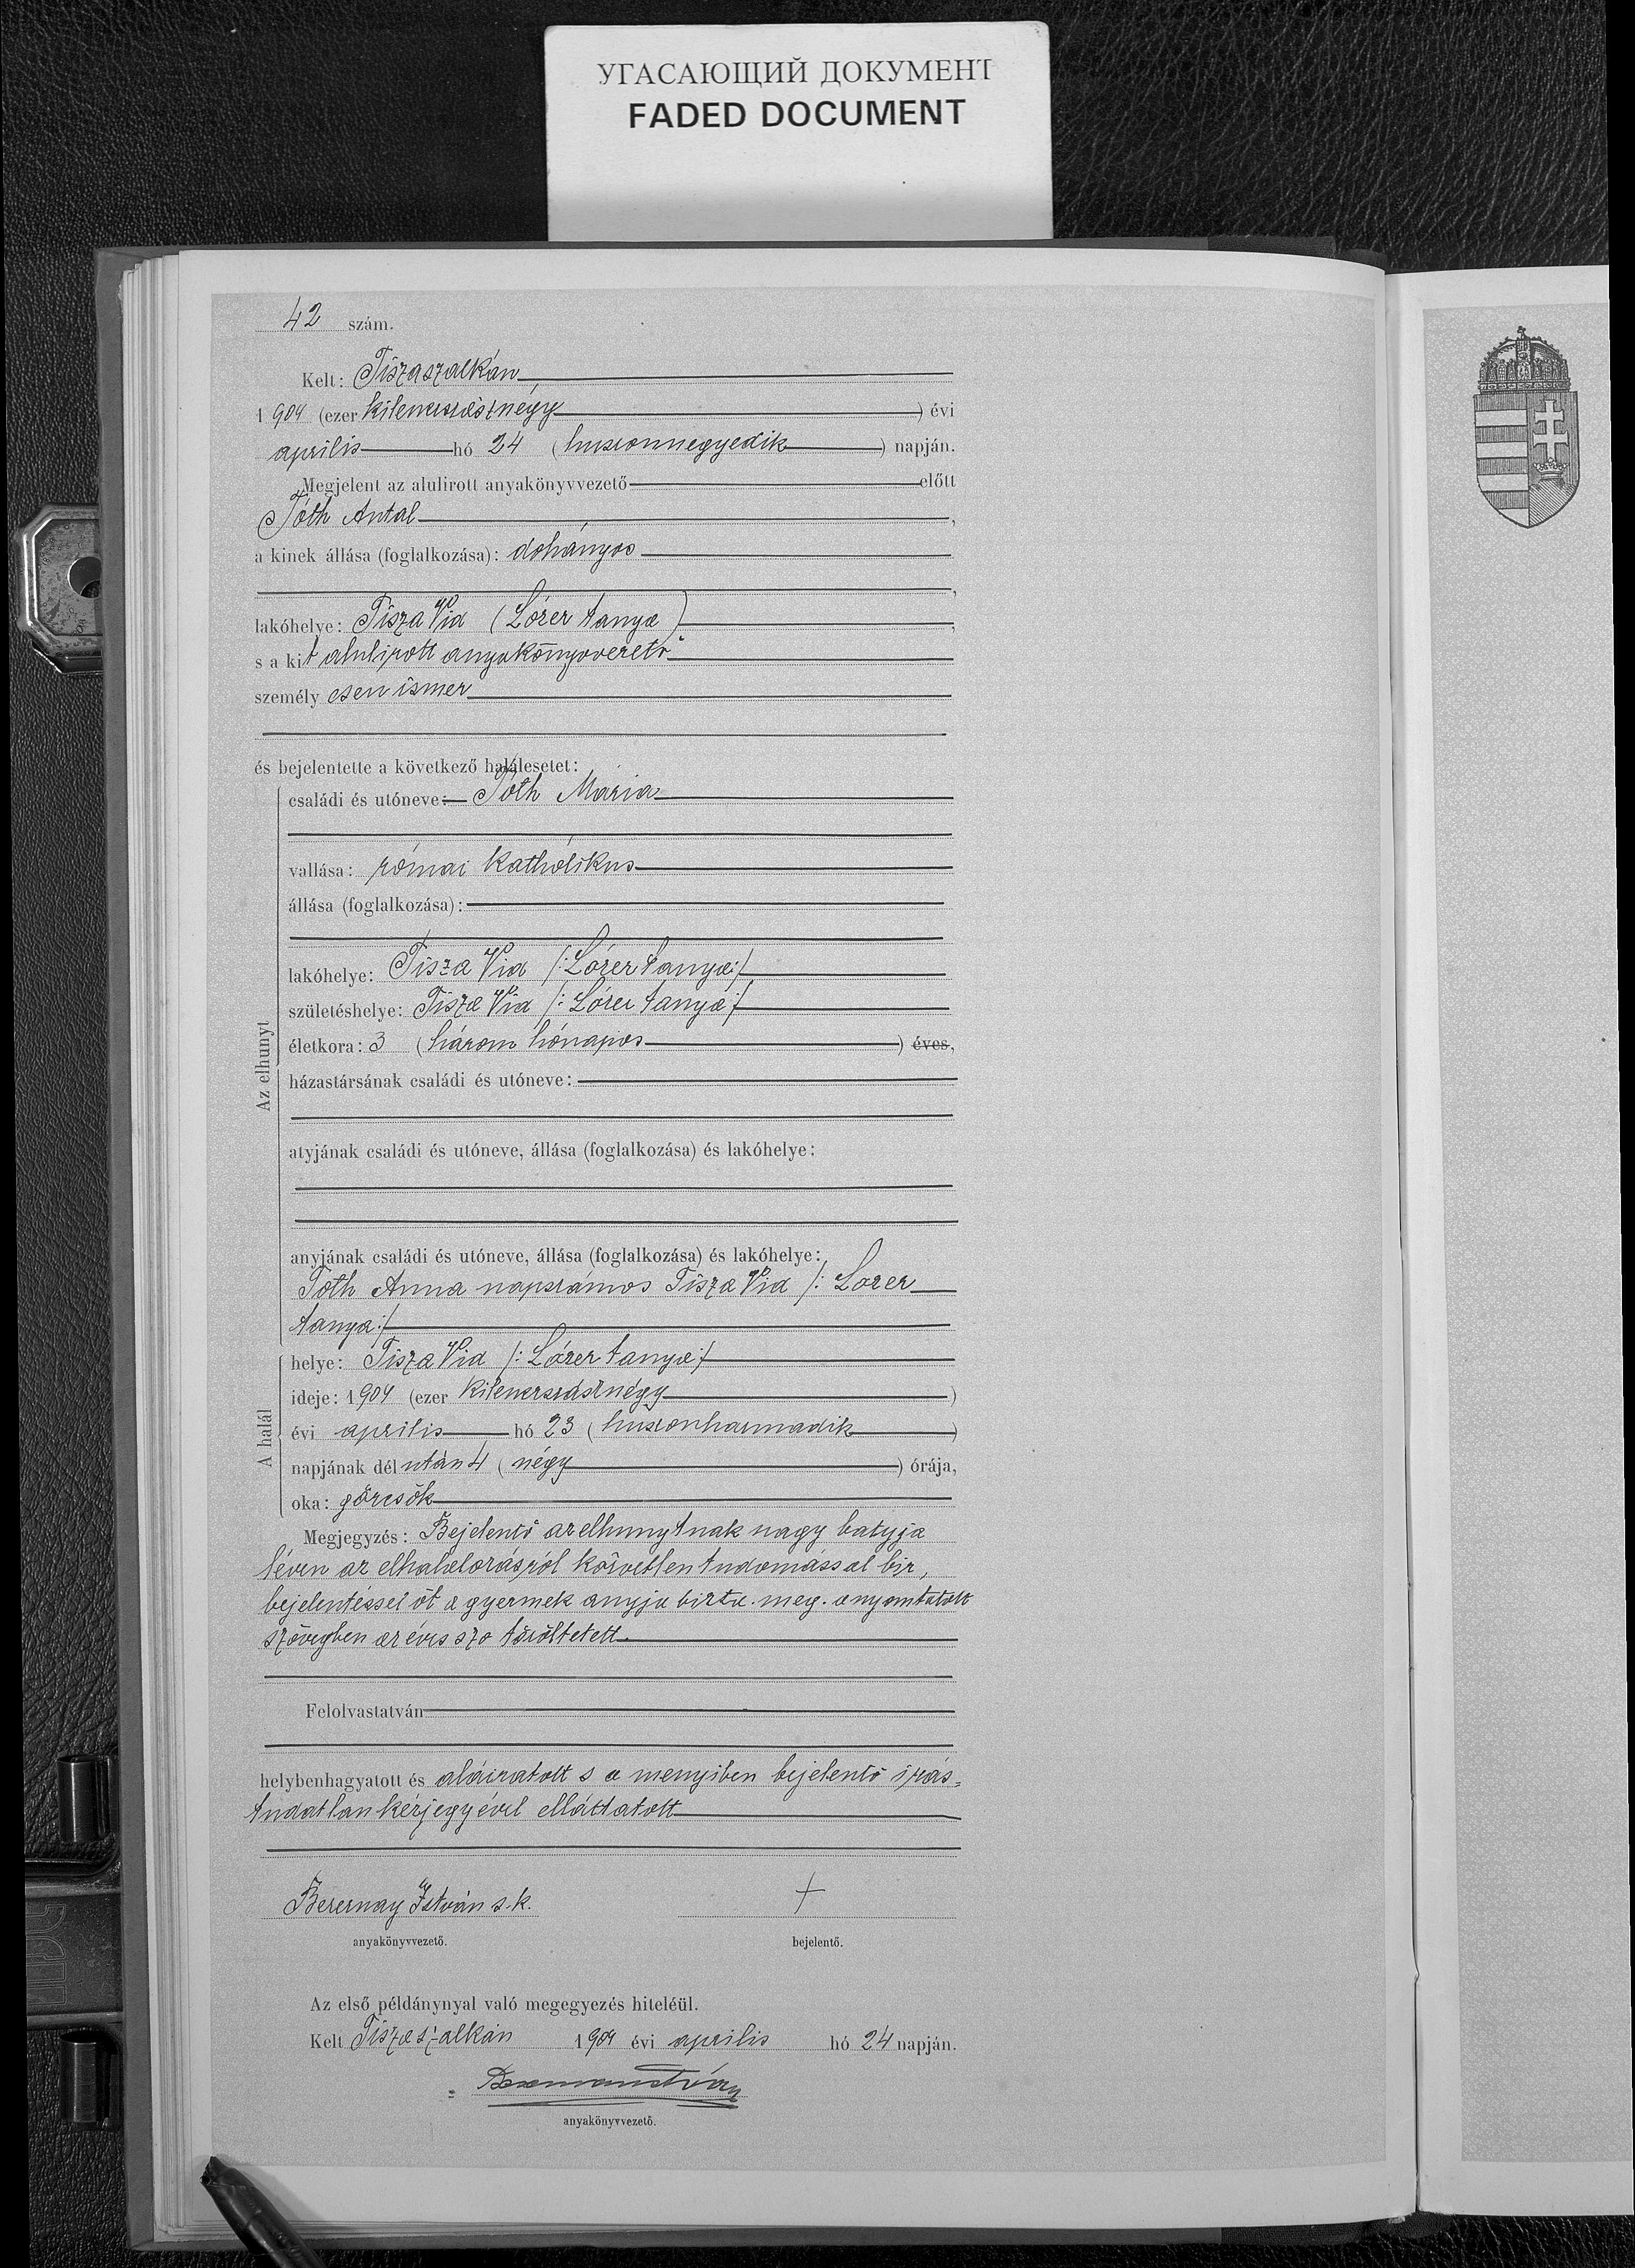 УГАСАЮЩИЙ ДОКУМЕНТ
FADED DOCUMENT
42 szám.
Kelt: Tiszaszalkán
1904 (ezer kilenczszáznégy) évi
aprilis hó 24 (huszonnegyedik) napján.
Megjelent az alulirott anyakönyvvezető előtt
Tóth Antal,
a kinek állása (foglalkozása): dohányos
,
lakóhelye: Tisza Vid (Lórer tanya),
s a kit alulirott anyakönyvvezető
személyesen ismer
és bejelentette a következő halálesetet:
Az elhunyt
családi és utóneve: Tóth Mária
vallása: római katholikus
állása (foglalkozása):
lakóhelye: Tisza Vid /: Lórer tanya :/
születéshelye: Tisza Vid /: Lórer tanya :/
életkora: 3 (három hónapos) éves,
házastársának családi és utóneve:
atyjának családi és utóneve, állása (foglalkozása) és lakóhelye:
anyjának családi és utóneve, állása (foglalkozása) és lakóhelye:
Tóth Anna napszámos Tisza Vid /: Lorer
tanya :/
A halál
helye: Tisza Vid /: Lórer tanya :/
ideje: 1904 (ezer kilenczszáznégy)
évi aprilis hó 23 (huszonharmadik)
napjának dél után 4 (négy) órája,
oka: görcsök
Megjegyzés: Bejelentő az elhunytnak nagy batyja
lévén az elhalálozásról közvetlen tudomással bir,
bejelentéssel őt a gyermek anyja bizta meg. a nyomtatott
szövegben az éves szo töröltetett.
Felolvastatván
helybenhagyatott és aláiratott s a menyiben bejelentő irás=
tudatlan kézjegyével elláttatott
Bezernay István s.k. +
anyakönyvvezető. bejelentő.
Az első példánynyal való megegyezés hiteléül.
Kelt Tiszaszalkán 1904 évi aprilis hó 24 napján.
anyakönyvvezető.